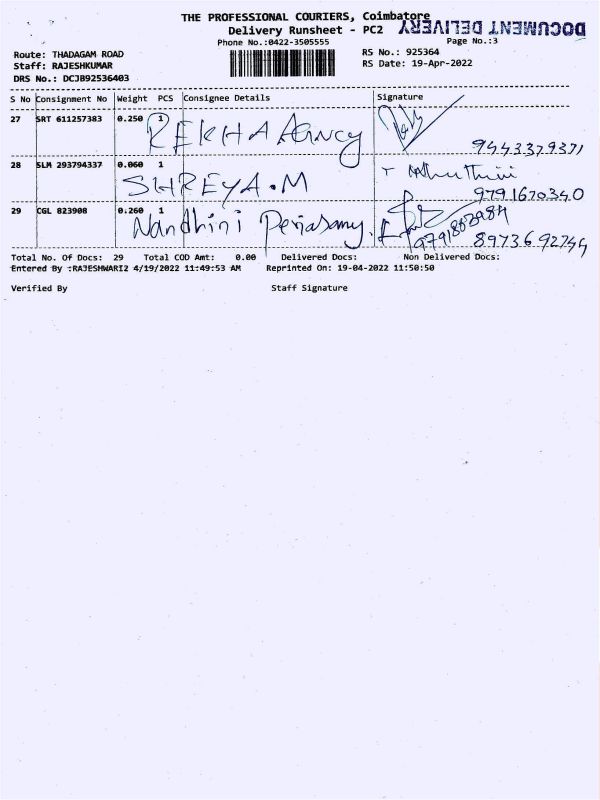 THE PROFESSIONAL COURIERS, Coimbatore
DOCUMENT DELIVERY
Delivery Runsheet - PC2
Phone No.:0422-3505555
Page No.:3
Route: THADAGAM ROAD
RS No.: 925364
Staff: RAJESHKUMAR
RS Date: 19-Apr-2022
DRS No.: DCJB92536403
S No Consignment No Weight PCS Consignee Details Signature
27 SRT 611257383 0.250 1
REKHA Agncy 9443379371
28 SLM 293794337 0.060 1
SHREYA.M 9791670340
29 CGL 823908 0.260 1
Nandhini Periasamy. 9791882984
8973692744
Total No. Of Docs: 29 Total COD Amt: 0.00 Delivered Docs: Non Delivered Docs:
Entered By :RAJESHWARI2 4/19/2022 11:49:53 AM Reprinted On: 19-04-2022 11:50:50
Verified By Staff Signature